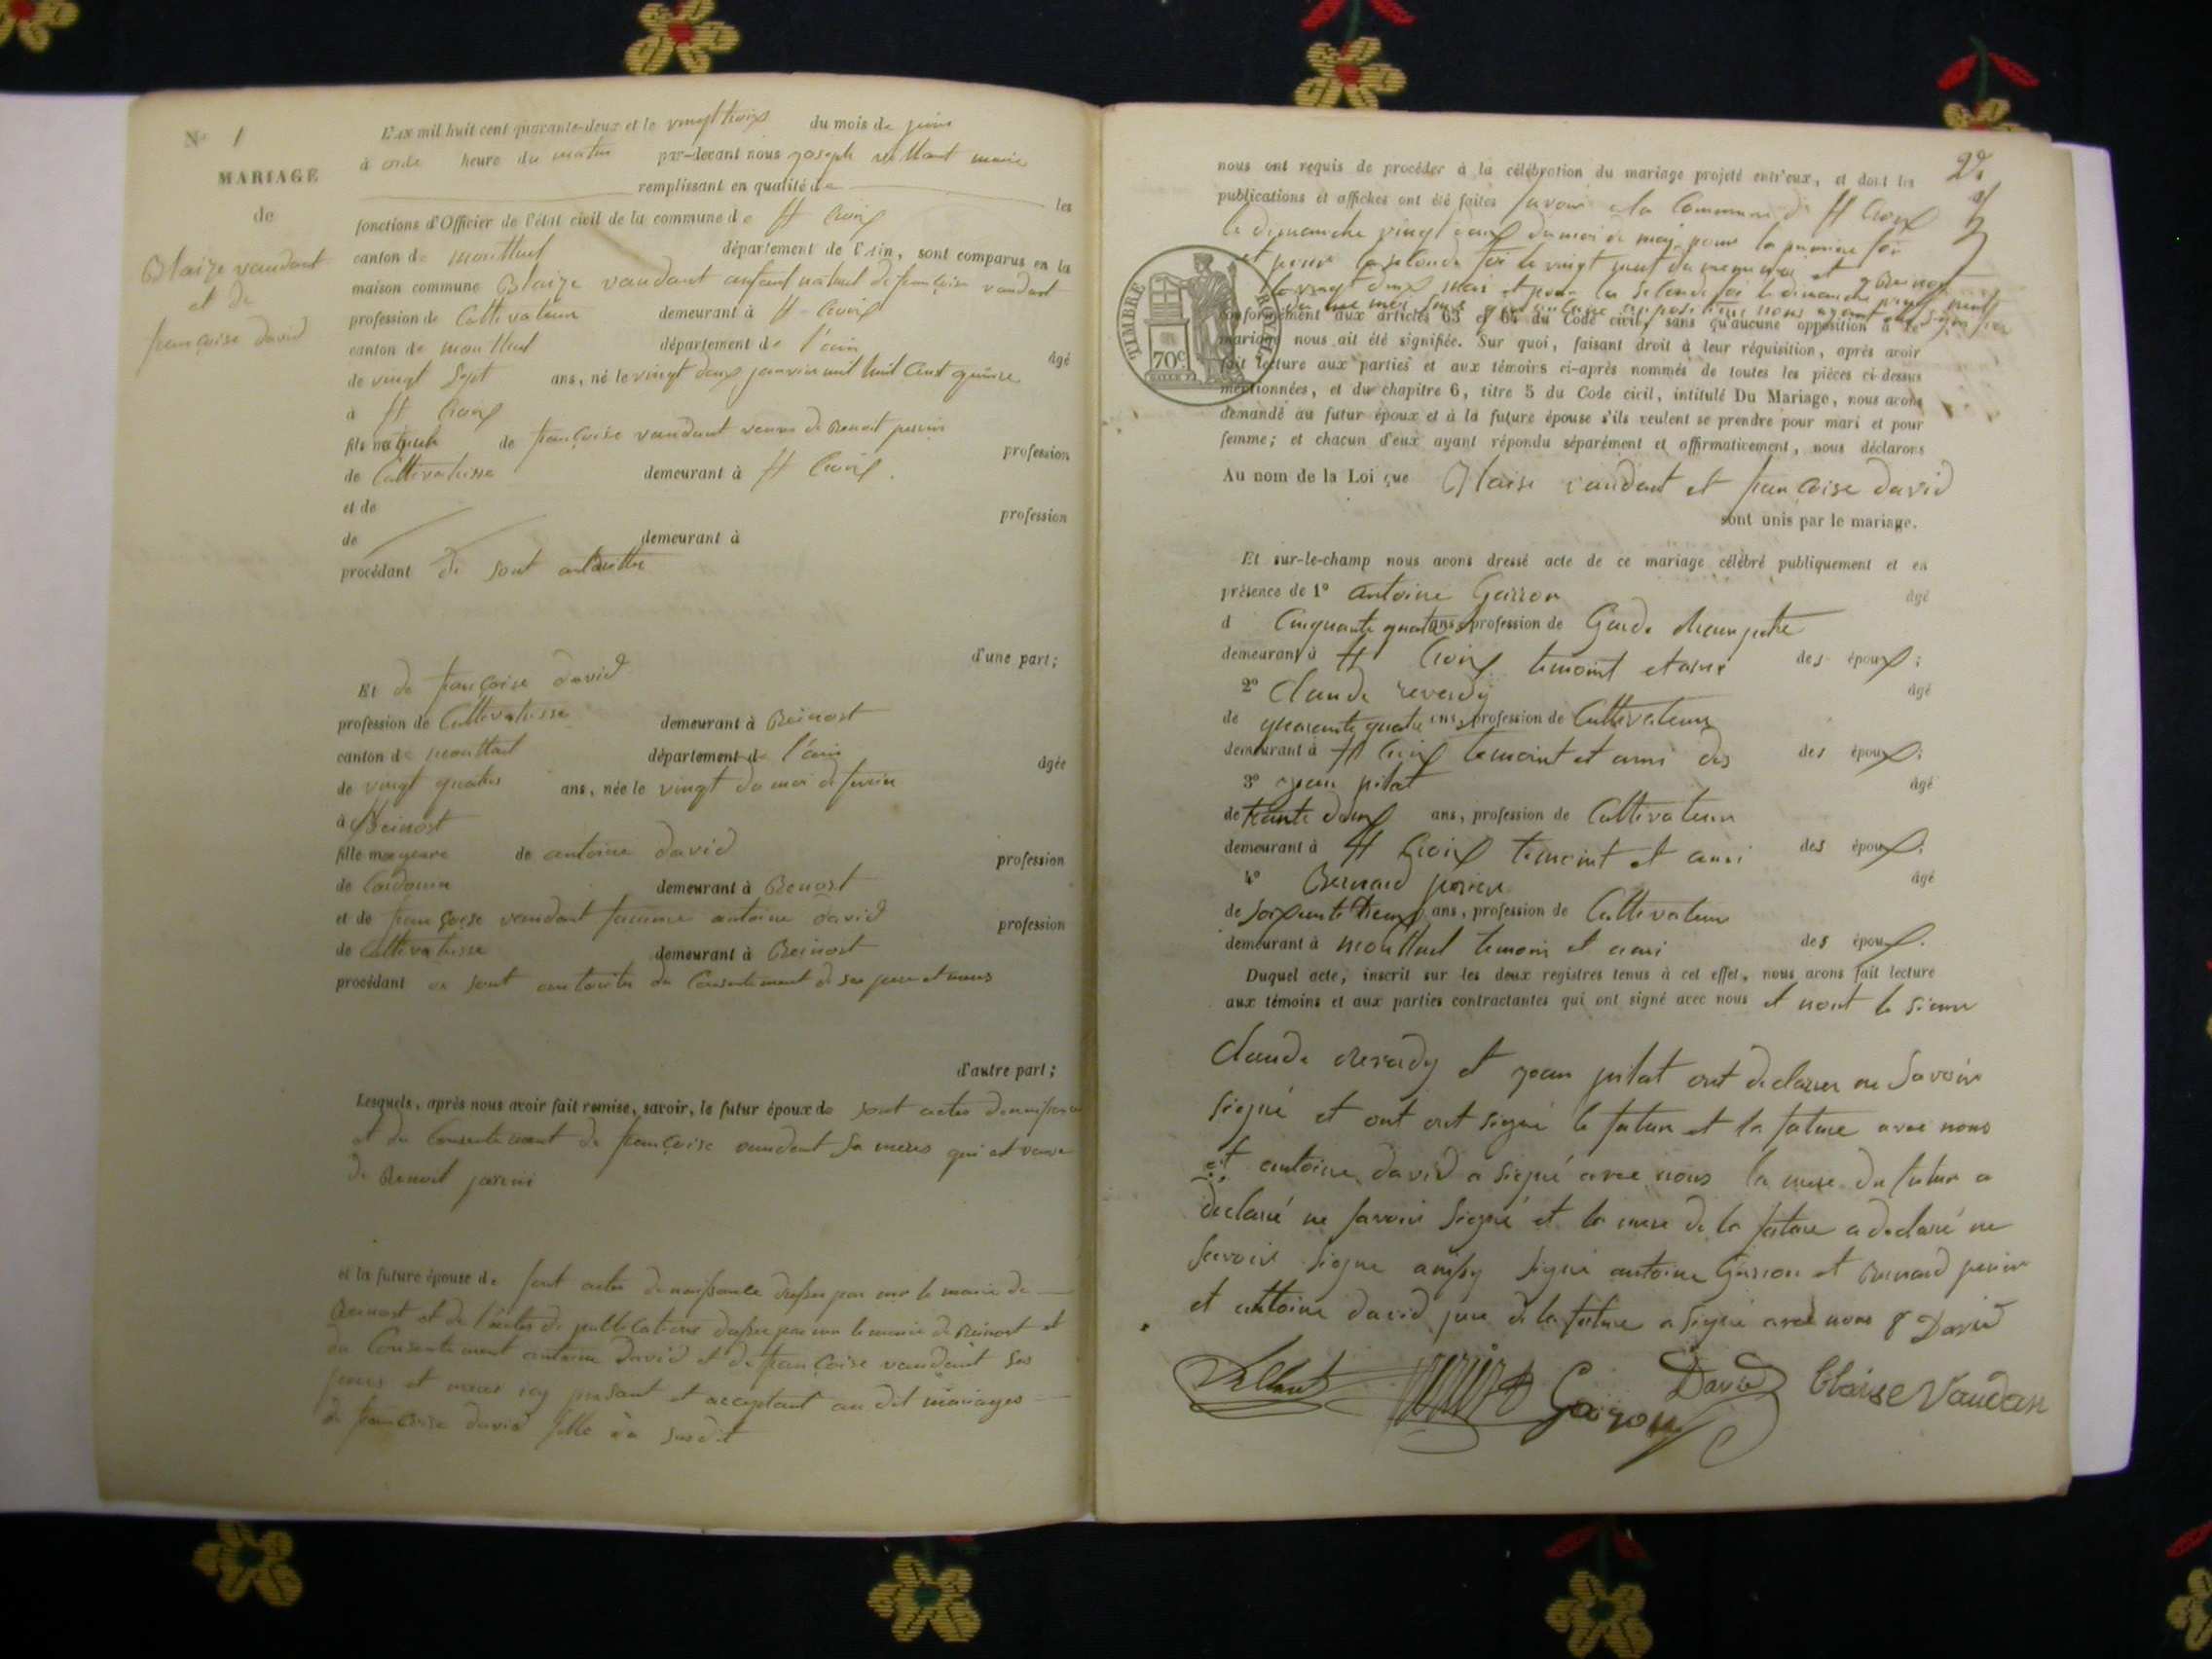 N° 1
MARIAGE
de
Blaize vaudant
et de
françoise david
L'AN mil huit cent quarante-deux et le vingt trois du mois de juin
à onze heure du matin par-devant nous joseph maire
remplissant en qualité de les
fonctions d'Officier de l'état civil de la commune de St Croix
canton de montluel département de l'Ain, sont comparus en la
maison commune Blaize vaudant enfant naturel de françoise vaudant
profession de Cultivateur demeurant à St Croix
canton de montluel département de l'ain âgé
de vingt Sept ans, né le vingt deux janvier mil huit Cent quinze
à St Croix
fils naturel de françoise vaudant veuve de Benoit
de Cultivatrisse demeurant à St Croix profession
et de
de demeurant à profession
procédant de sont
d'une part;
Et de françoise david
profession de Cultivatrisse demeurant à Beinost
canton de montluel département de l'ain
de vingt quatre ans, née le vingt du moi de âgée
à Beinost
fille mageure de antoine david
de demeurant à Benost profession
et de françoise vaudant famme antoine david
de Cultivatrisse demeurant à Beinost profession
procédant sont du Consentement de ses pere et mere
d'autre part;
Lesquels, après nous avoir fait remise, savoir, le futur époux de sont actes
et du Consentement de françoise vaudant sa mere qui est veuve
de Benoit
et la future épouse de sont actes de naissance par le maire de
Beinost et de l'actes de publications par le maire de Beinost et
du Consentement antoine David et de françoise vaudant ses
peres et meres icy et acceptant au dit mariages
de françoise david fille
2e
nous ont requis de procéder à la célébration du mariage projeté entr'eux, et dont les
publications et affiches ont été faites savoir a la Commune de St Croix
le dimanche vingt deux du moi de mai pour la premiere foi
et pour la seconde foi le vingt neuf du meme moi et a Beinost
le vingt deux mai et pour la seconde foi le dimanche vingt neuf
du meme moi
TIMBRE ROYAL
70c
conformément aux articles 63 et 64 du Code civil, sans qu'aucune opposition à ce
mariage nous ait été signifiée. Sur quoi, faisant droit à leur réquisition, après avoir
fait lecture aux parties et aux témoins ci-après nommés de toutes les pièces ci-dessus
mentionnées, et du chapitre 6, titre 5 du Code civil, intitulé Du Mariage, nous avons
demandé au futur époux et à la future épouse s'ils veulent se prendre pour mari et pour
femme; et chacun d'eux ayant répondu séparément et affirmativement, nous déclarons
Au nom de la Loi que Blaise vaudant et françoise david
sont unis par le mariage.
Et sur-le-champ nous avons dressé acte de ce mariage célébré publiquement et en
présence de 1° antoine Garron âgé
d Cinquante quatre ans, profession de Garde champetre
demeurant à St Croix temoint et ami des époux;
2° Claude reverdy âgé
de quarante quatre ans, profession de Cultivateur
demeurant à St Croix temoint et ami des des époux;
3° jean pilat âgé
de trante deux ans, profession de Cultivateur
demeurant à St Croix temoint et ami des époux;
4° Bernard perier âgé
de ans, profession de Cultivateur
demeurant à montluel temoin et ami des époux.
Duquel acte, inscrit sur les deux registres tenus à cet effet, nous avons fait lecture
aux témoins et aux parties contractantes qui ont signé avec nous et nont le sieur
Claude reverdy et jean pilat ont declarer ne Savoir
signé et ont ont signé le futur et la future avec nous
et antoine david a signé avec nous la mere du futur a
declaré ne savoir signé et la mere de la future a declaré ne
savoir signe signé antoine Garron et Bernard perier
et antoine david pere de la future a signé avec nous f David
Garron David blaise Vaudan